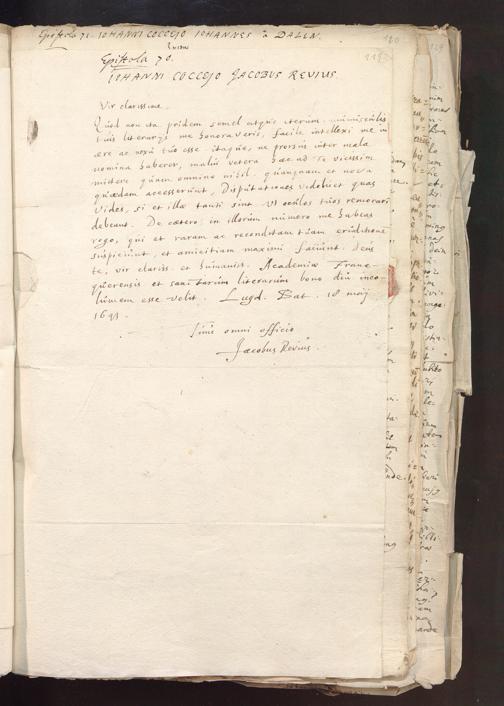 Epistola 71. IOHANNI COCCEJO IOHANNES à DALEN.
Epistola 70.
IOHANNI COCCEJO JACOBUS REVIUS.
Vir clarissime,
Quod non ita pridem semel atque iterum munusculis
tuis literarijs me honoraveris, facile intellexi me in
ære ac nexu tuo esse. itaque, ne prorsus inter mala
nomina haberer, malui vetera hæc ad te vicissim
mittere quam omnino nihil. quanquam et nova
quædam accesserunt, Disputationes videlicet quas
vides, si et illæ tanti sint ut oculos tuos remorari
debeant. De cætero, in illorum numero me habeas
rogo, qui et raram ac reconditam tuam eruditionem
suspiciunt, et amicitiam maximi faciunt. Deus
te, vir clariss. et humaniss. Academiæ Frane-
querensis et sanctarum literarum bono diu inco-
lumem esse velit. Lugd. Bat. 18 maij
Tuus omni officio
Jacobus Revius.